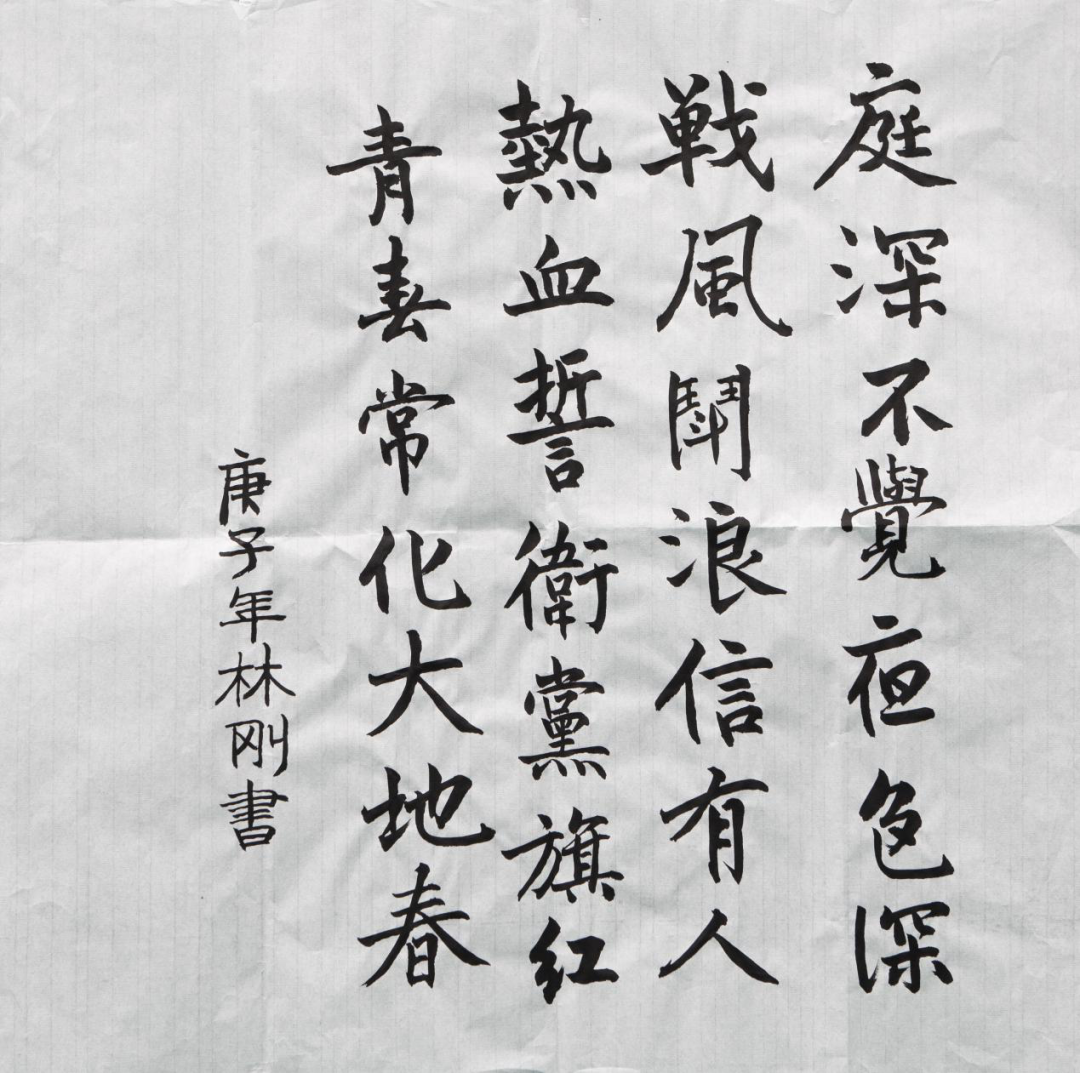 庭深不覺夜色深
戦風鬪浪信有人
熱血誓衛黨旗红
青春常化大地春
庚子年林刚書